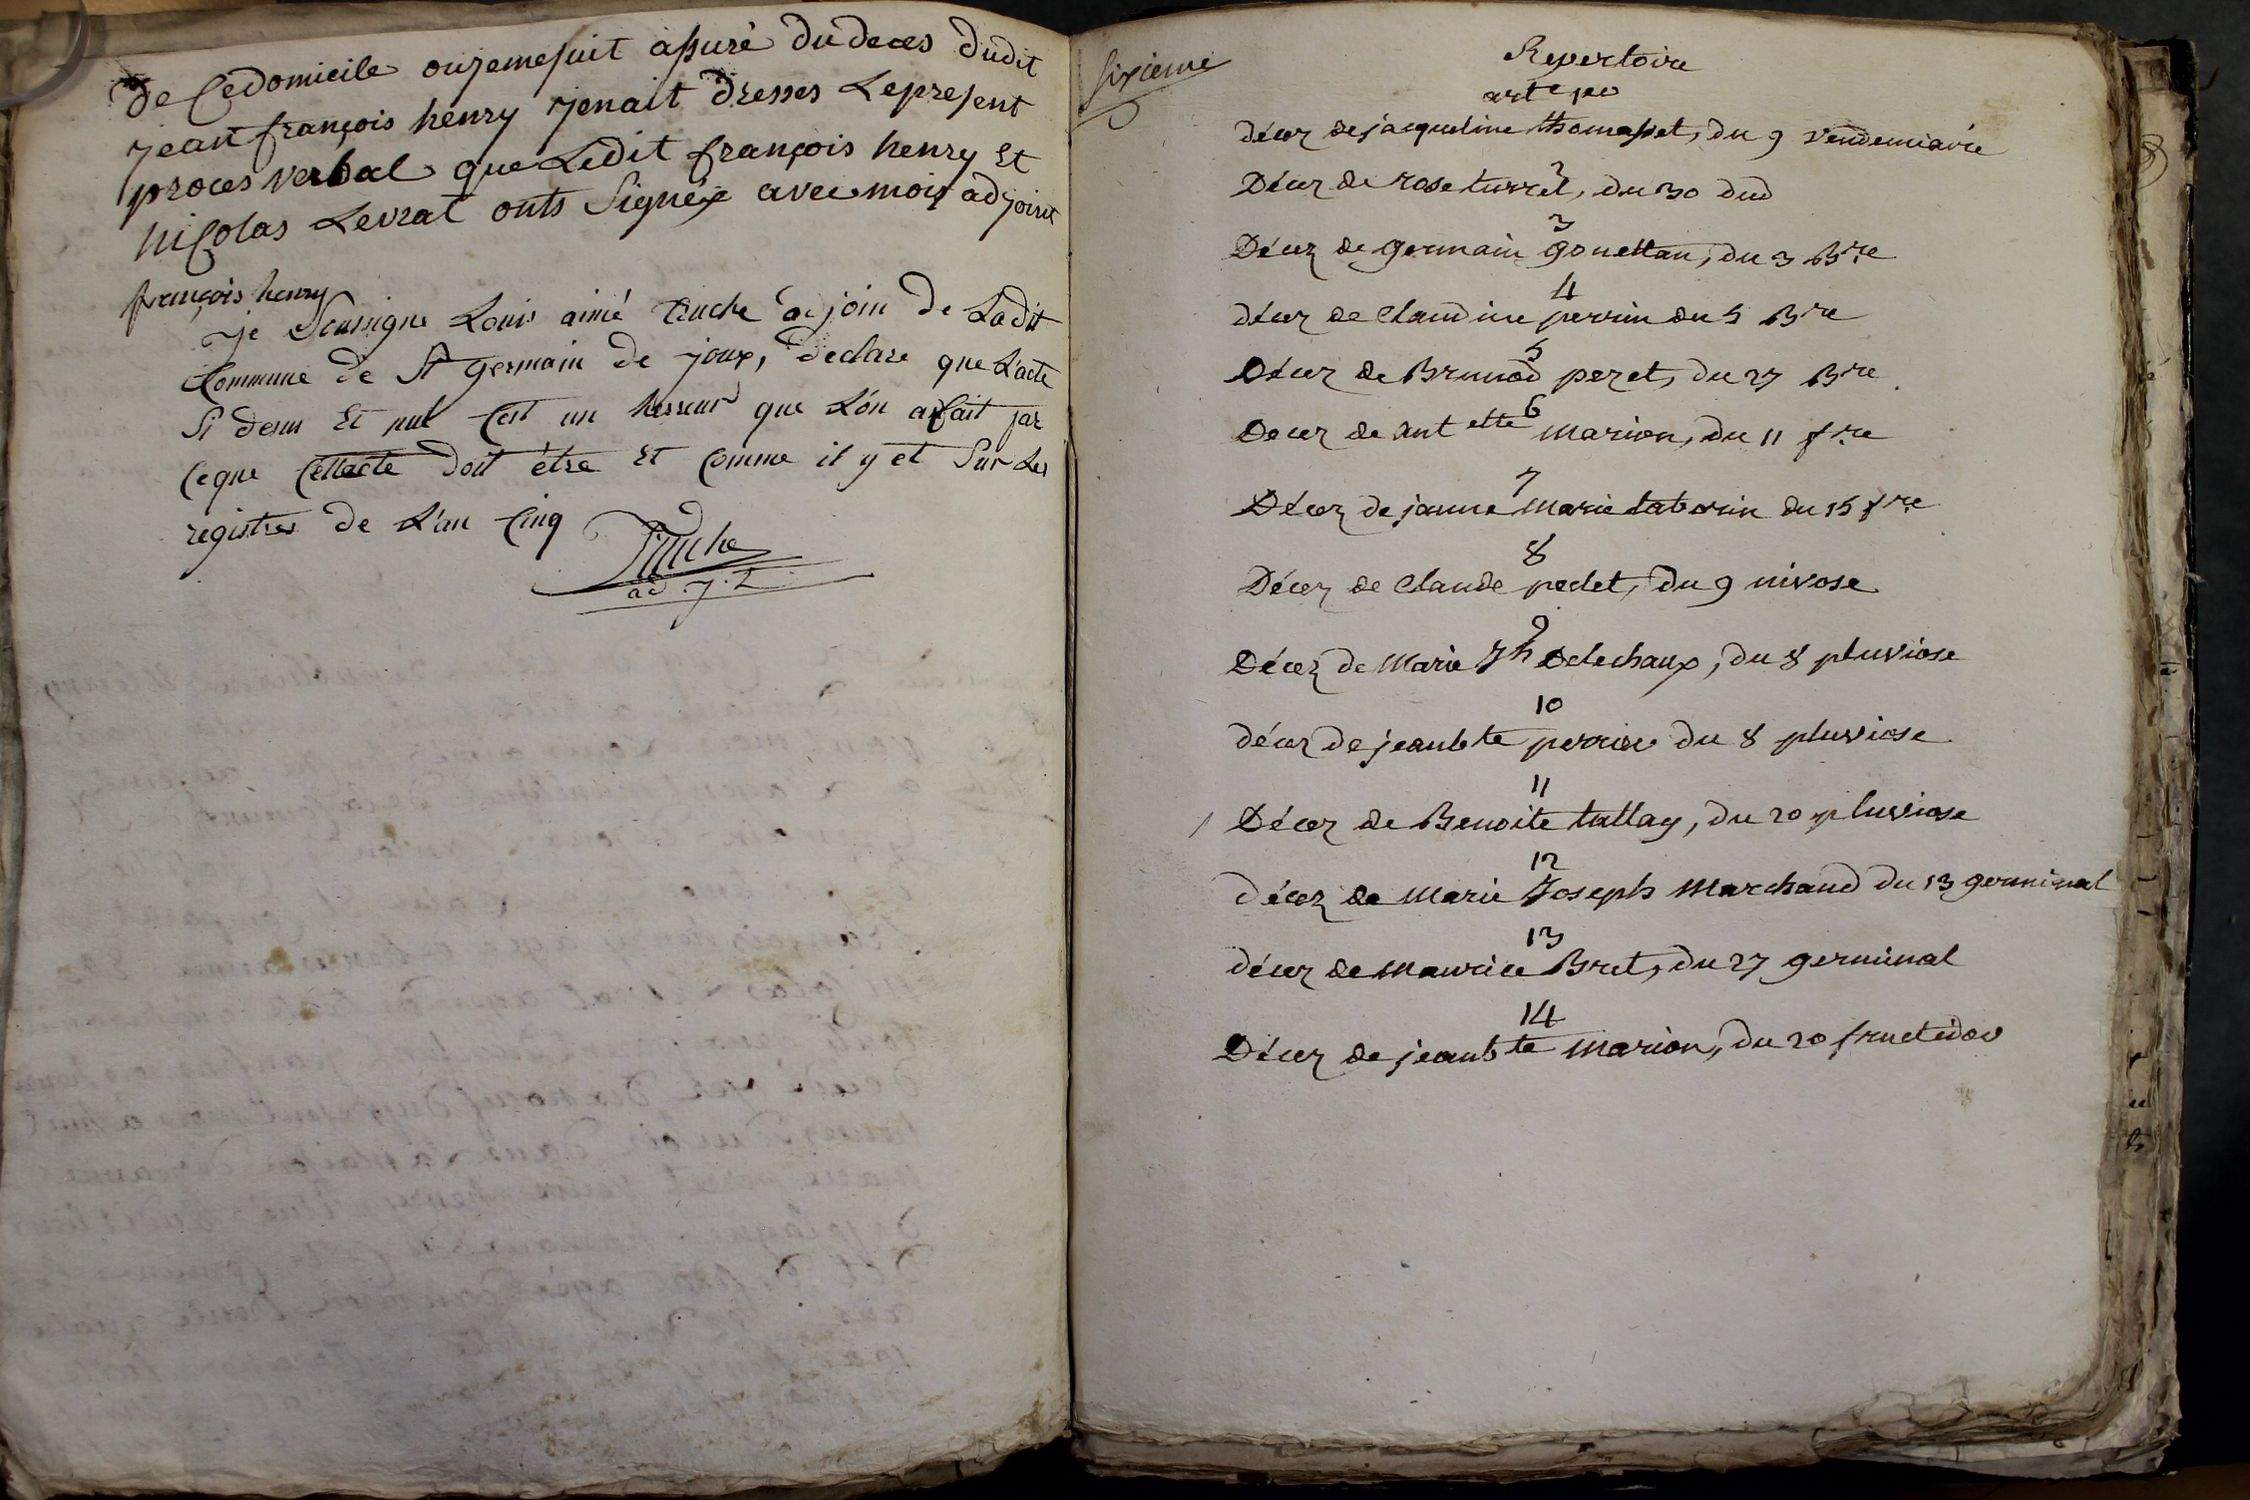 De Cedomicile oujemesuit assuré dudeces dudit
jean françois henry jenait dresses Lepresent
proces verbal que Ledit françois henry Et
nicolas Levrat onts Signéx avec moi adjoint
françois henry
je Soussigne Louis aimé Tuche adjoin de Ladit
Commune de St germain de joux, declare que L'acte
Si desus Et nul Cest un herreur que L'on a fait par
Ceque Cettacte doit être Et Comme il y et Sur Les
registres de L'an Cinq
Tuche
ad. j. t.
Sixieme
Repertoire
art e pr
décez de jacqueline thomasset, du 9 vendemiaire
2
Décez de rose turrel, du 30 dud
3
Décez de germain gonettan, du 3 Bre
4
décez de Claudine perrin du 5 Bre
5
Décez de Brunod peret, du 27 Bre
6
Decez de Antette Marion, du 11 fre
7
Décez de janne Marie taborin du 15 fre
8
Décez de Claude pedet, du 9 nivose
9
Décez de Marie Jh Delechaux, du 8 pluviose
10
décez de jeanbte perrier du 8 pluviose
11
Décez de Benoite tallay, du 20 pluviose
12
décez de Marie Joseph Marchand du 13 germinal
13
décez de Maurice Bret, du 27 germinal
14
Décez de jeanbte Marion, du 20 fructidor